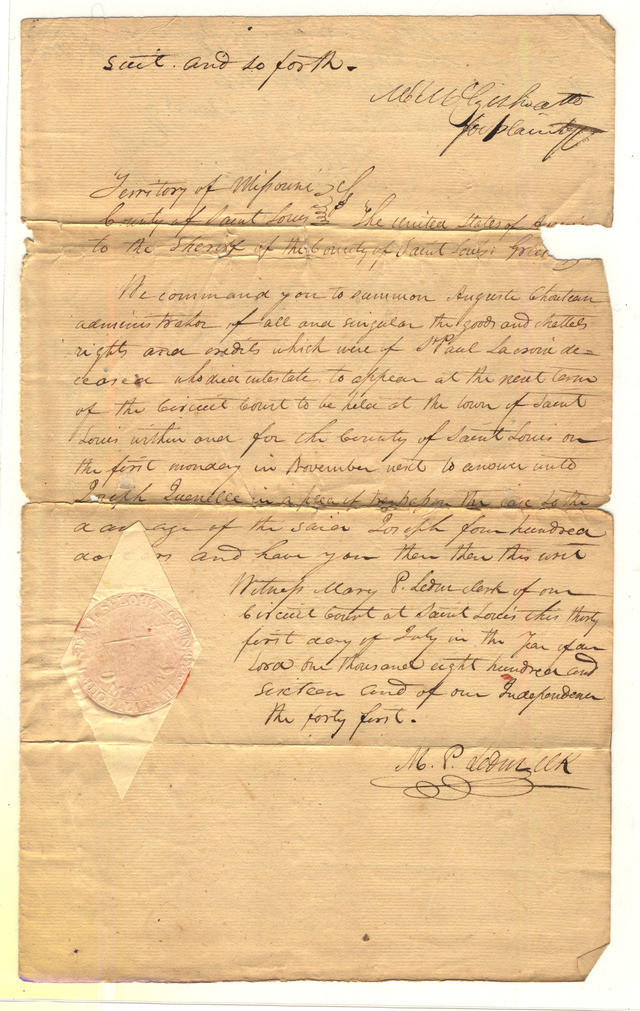 suit. and so forth.
for plaintiff
Territory of Missouri
County of Saint Louis The United States of
to the Sheriff of the County of Saint Louis
We command you to summon Auguste Chouteau
administrator of all and singular the goods and chattels
rights and credits which were of St Paul Lacroix de=
ceased who died intestate to appear at the next term
of the Circuit Court to be held at the town of Saint
Louis within and for the County of Saint Louis on
the first monday in November next to answer unto
Joseph in a plea of trespass on the case to the
damage of the said Joseph four hundred
and have you then then this writ
Witness Mary P. Leduc clerk of our
Circuit Court at Saint Louis this thirty
first day of July in the Year of our
Lord one thousand eight hundred and
sixteen and of our Independence
the forty first.
M. P. Leduc clk